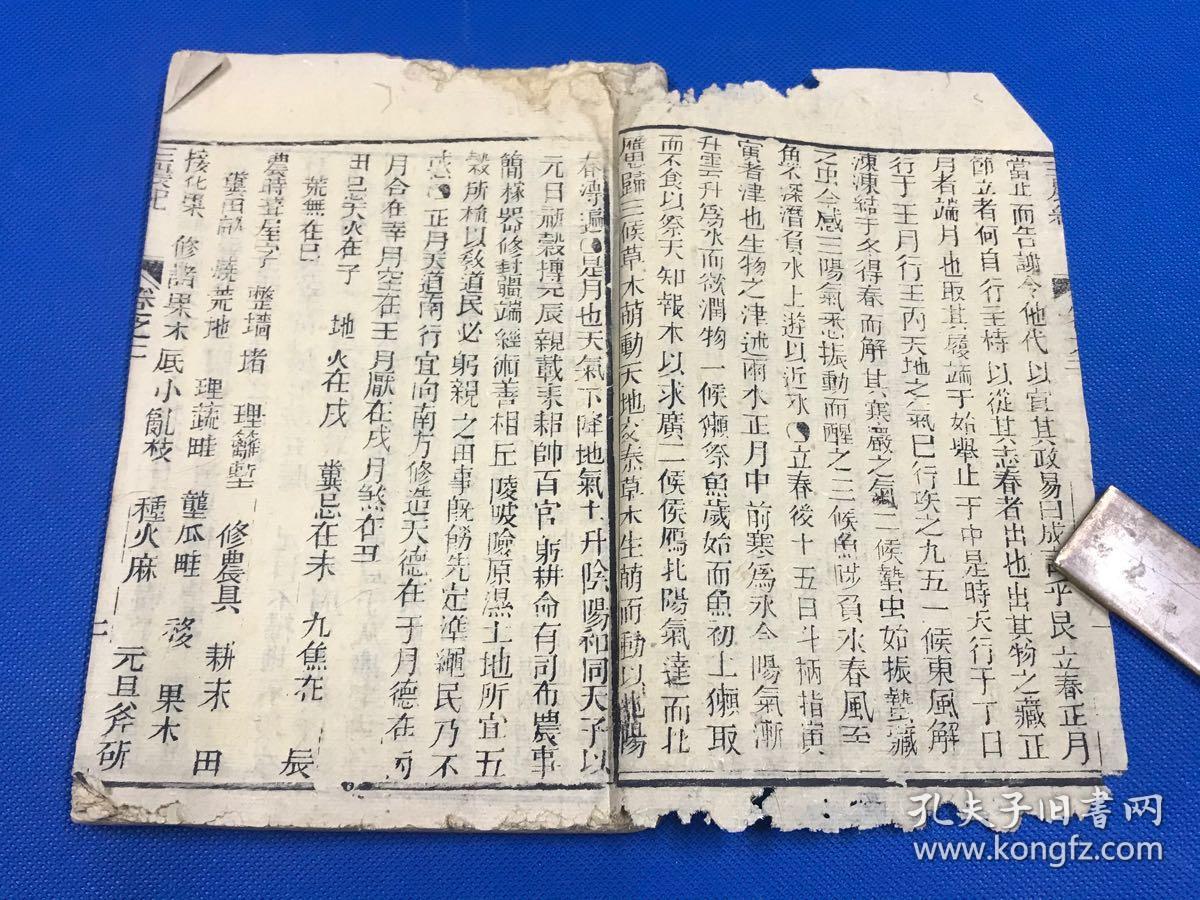 當止而告謝令他代以宣其政易曰成乎艮立春正月
節立者何自行主持以從其志春者出也出其物之藏正
月者端月也取其發端于始舉止于中是時天行于丁日
行于壬月行壬丙天地之氣巳行矣之九五一候東風解
凍凍結于冬得春而解其寒嚴之氣二候蟄虫始振蟄藏
之虫今感三陽氣來忽振動而醒之三候魚陟負氷春風至
魚不深潛負水上遊以近氷立春後十五日斗柄指寅
寅者津也生物之津述雨水正月中前寒爲氷今陽氣漸
升雲升爲水而欲潤物一候獺祭魚歲始而魚初上獺取
而不食以祭天知報本以求廣二候侯鴈北陽氣達而北
鴈思歸三候草木萌動天地交泰草木生萌而動以兆陽
春澤遍是月也天氣下降地氣上升陰陽和同天子以
元日祈穀摶元辰親載耒耜帥百官躬耕命有司布農事
簡稼器修封疆端經術善相丘陵坂險原濕土地所宜五
穀所植以敎道民必躬親之田事旣飭先定準繩民乃不
惑正月天道南行宜向南方修造天德在丁月德在丙
月合在辛月空在壬月厭在戌月煞在丑
田忌天火在子 地火在戌 糞忌在未 九焦在辰
荒蕪在巳
農時葺屋子 整墻堵 理籬塹 修農具 耕末田
糞田 燒荒地 理蔬畦 壅瓜畦 移果木
接化果 修諸果木底小亂枝 種火麻 元旦斧斫
三農紀
卷之二
二
孔夫子旧书网
www.kongfz.com